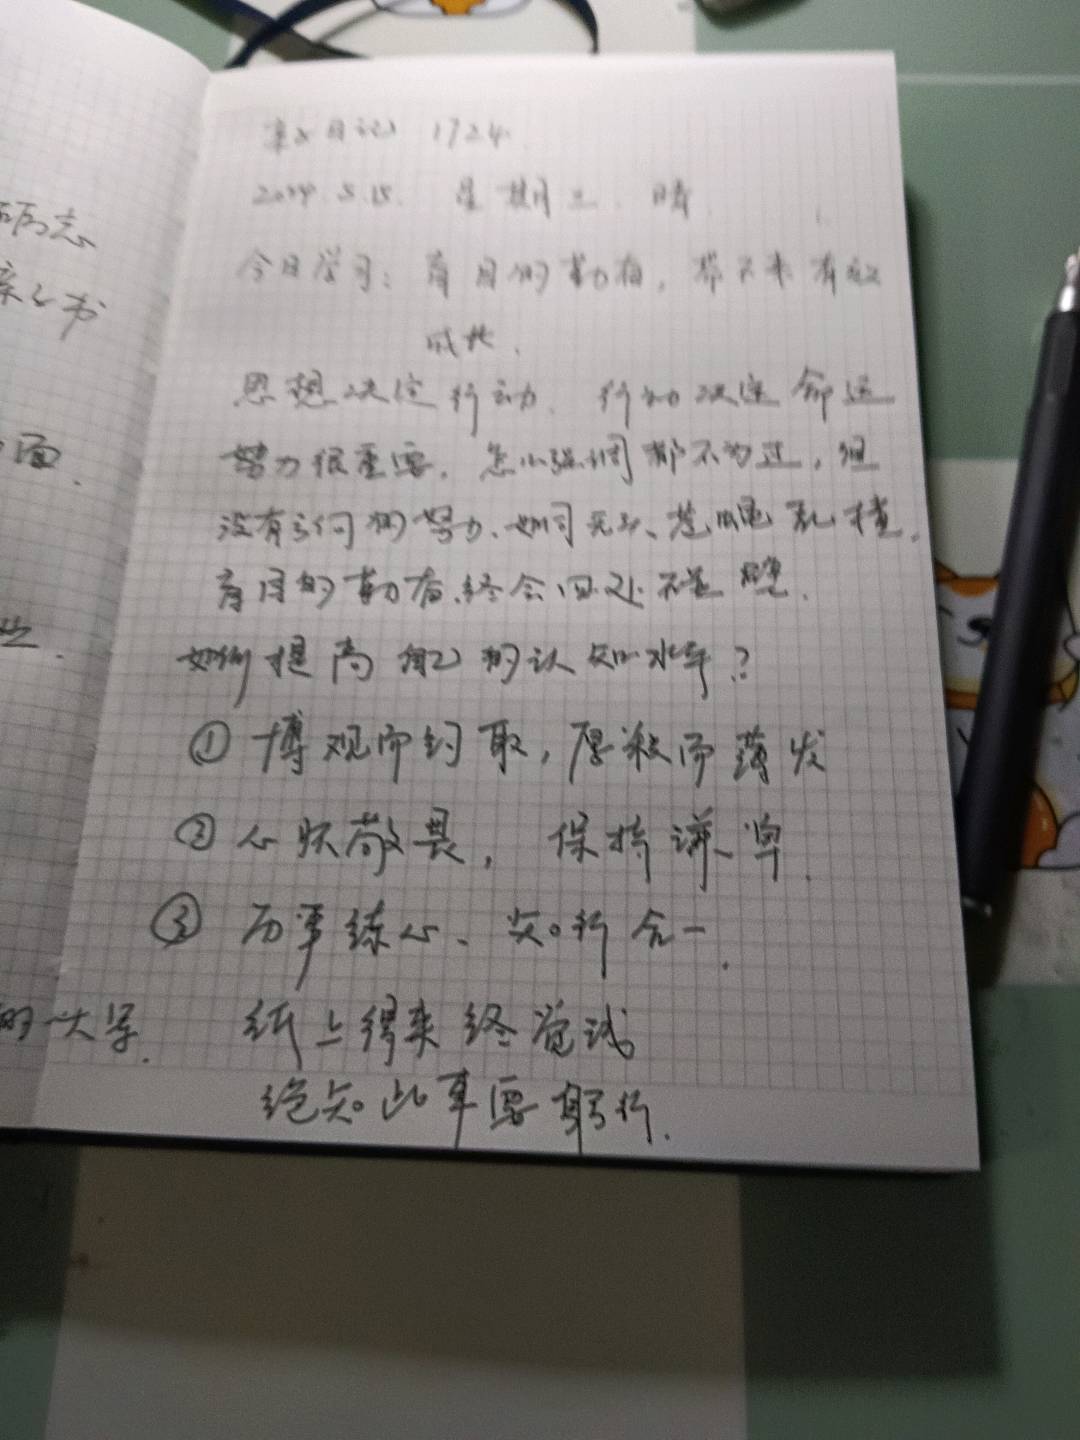 日记 1724
2024.5.15. 星期三. 晴.
今日学习: 盲目的勤奋, 带不来有效
成长.
思想决定行动. 行动决定命运
努力很重要. 怎么强调都不为过, 但
没有方向的努力. 如同无头苍蝇乱撞.
盲目的勤奋. 终会四处碰壁.
如何提高自己的认知水平?
① 博观而约取, 厚积而薄发
② 心怀敬畏, 保持谦卑.
③ 历事练心、知行合一.
纸上得来终觉浅
绝知此事要躬行.
励志
亲子书
面.
的一大步.